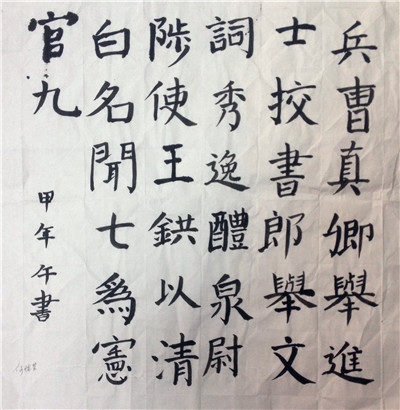 兵曹真卿舉進
士挍書郎舉文
詞秀逸醴泉尉
陟使王鉷以清
白名聞七爲憲
官九
甲年午書